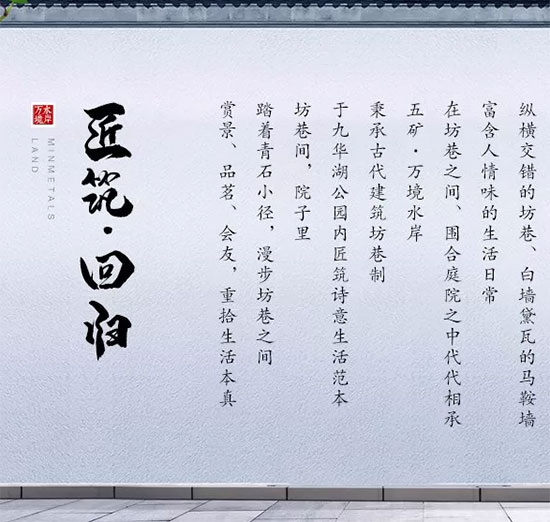 纵横交错的坊巷、白墙黛瓦的马鞍墙
富含人情味的生活日常
在坊巷之间、围合庭院之中代代相承
五矿·万境水岸
秉承古代建筑坊巷制
于九华湖公园内匠筑诗意生活范本
坊巷间，院子里
踏着青石小径，漫步坊巷之间
赏景、品茗、会友，重拾生活本真
匠筑·回归
水岸
万境
MINMETALS
LAND